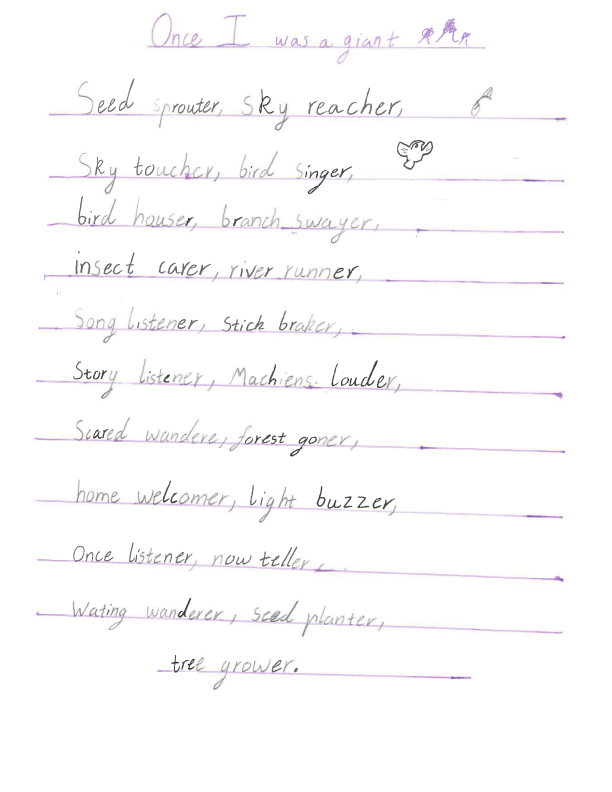 Once I was a giant
Seed sprouter, Sky reacher,
Sky toucher, bird singer,
bird houser, branch swayer,
insect carer, river runner,
Song listener, Stick braker,
Story listener, Machiens louder,
Scared wandere, forest goner,
home welcomer, light buzzer,
Once listener, now teller,
Wating wanderer, seed planter,
tree grower.